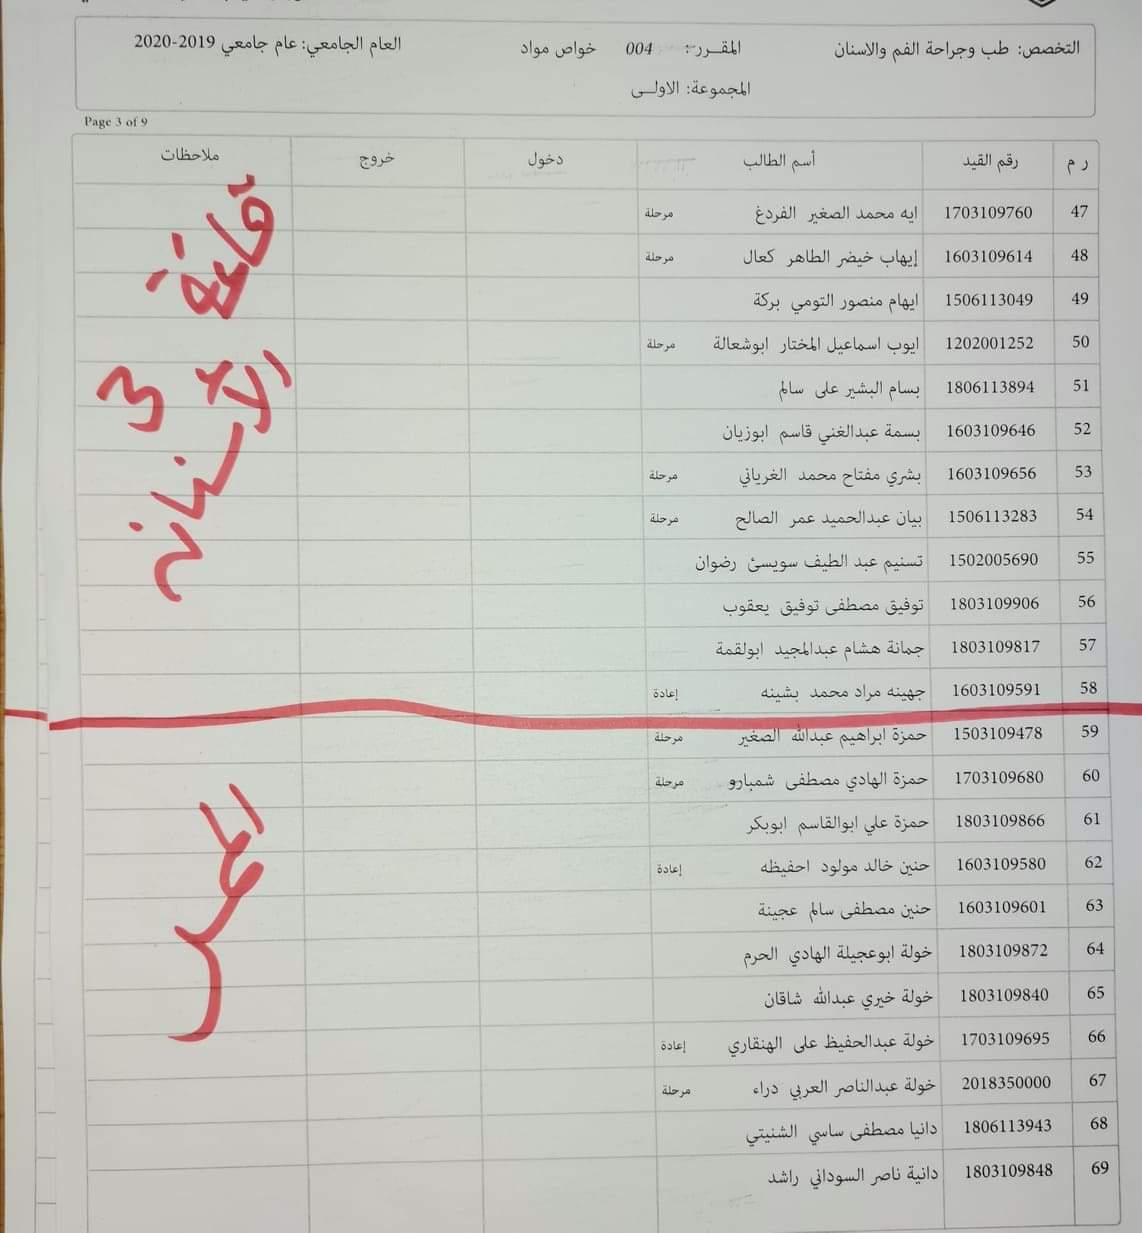 التخصص: طب وجراحة الفم والاسنان المقرر: 004 خواص مواد العام الجامعي: عام جامعي 2019-2020
المجموعة: الاولى
Page 3 of 9
ر م رقم القيد أسم الطالب دخول خروج ملاحظات
47 1703109760 ايه محمد الصغير الفردغ مرحلة
48 1603109614 إيهاب خيضر الطاهر كعال مرحلة
49 1506113049 ايهام منصور التومي بركة
50 1202001252 ايوب اسماعيل المختار ابوشعالة مرحلة
51 1806113894 بسام البشير على سالم
52 1603109646 بسمة عبدالغني قاسم ابوزيان
53 1603109656 بشري مفتاح محمد الغرياني مرحلة
54 1506113283 بيان عبدالحميد عمر الصالح مرحلة
55 1502005690 تسنيم عبد الطيف سويسئ رضوان
56 1803109906 توفيق مصطفى توفيق يعقوب
57 1803109817 جمانة هشام عبدالمجيد ابولقمة
58 1603109591 جهينه مراد محمد بشينه إعادة
قاعة
الأسنان 3
59 1503109478 حمزة ابراهيم عبدالله الصغير مرحلة
60 1703109680 حمزة الهادي مصطفى شمبارو مرحلة
61 1803109866 حمزة علي ابوالقاسم ابوبكر
62 1603109580 حنين خالد مولود احفيظه إعادة
63 1603109601 حنين مصطفى سالم عجينة
64 1803109872 خولة ابوعجيلة الهادي الحرم
65 1803109840 خولة خيري عبدالله شاقان
66 1703109695 خولة عبدالحفيظ على الهنقاري إعادة
67 2018350000 خولة عبدالناصر العربي دراء مرحلة
68 1806113943 دانيا مصطفى ساسي الشنيتي
69 1803109848 دانية ناصر السوداني راشد